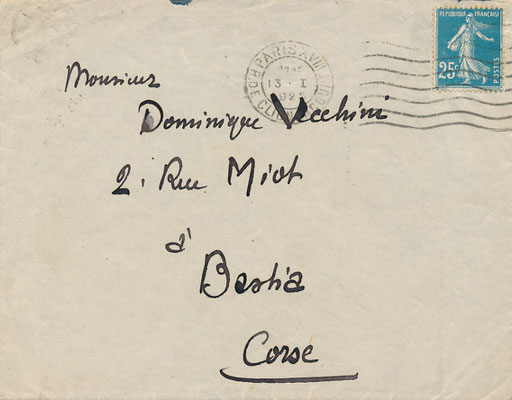 RÉPUBLIQUE FRANÇAISE
25c
POSTES
PARIS XVIII
13 - I
1925
Monsieur
Dominique Vecchini
2, Rue Miot
à
Bastia
Corse